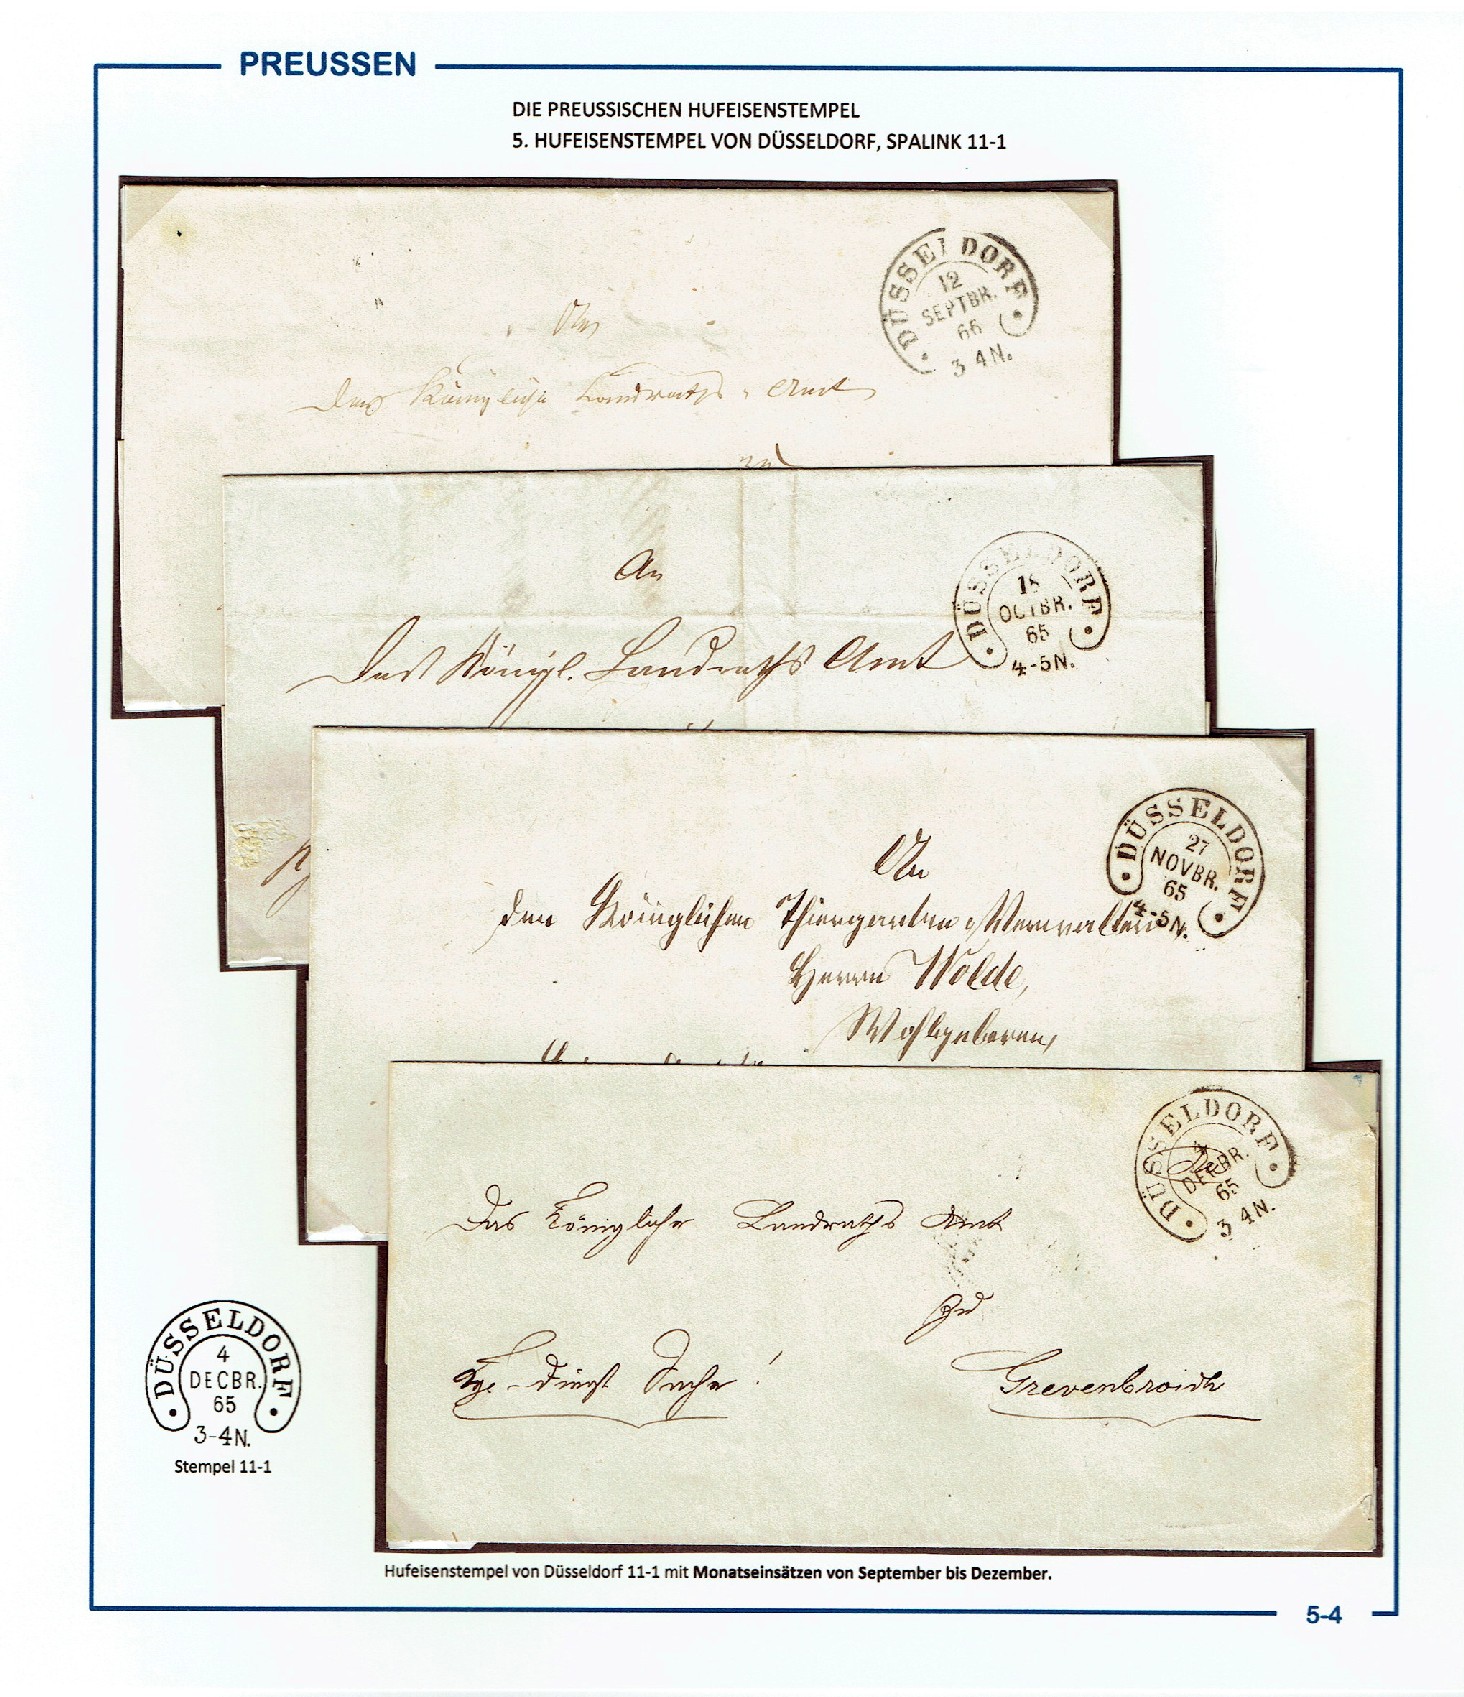 PREUSSEN
DIE PREUSSISCHEN HUFEISENSTEMPEL
5. HUFEISENSTEMPEL VON DÜSSELDORF, SPALINK 11-1
DÜSSELDORF
12
SEPTBR.
66
3 4N.
An
das Königliche Landraths-Amt
zu
DÜSSELDORF
18
OCTBR.
65
4-5N.
An
Das Königl. Landraths Amt
DÜSSELDORF
27
NOVBR.
65
4-5N.
An
den Königlichen Thiergarten-Verwalter
Herrn Wolde,
Wohlgeboren,
DÜSSELDORF
4
DECBR.
65
3 4N.
Das Königliche Landraths Amt
zu
Kge-Dienst Sache!
Grevenbroich
DÜSSELDORF
4
DECBR.
65
3-4N.
Stempel 11-1
Hufeisenstempel von Düsseldorf 11-1 mit Monatseinsätzen von September bis Dezember.
5-4